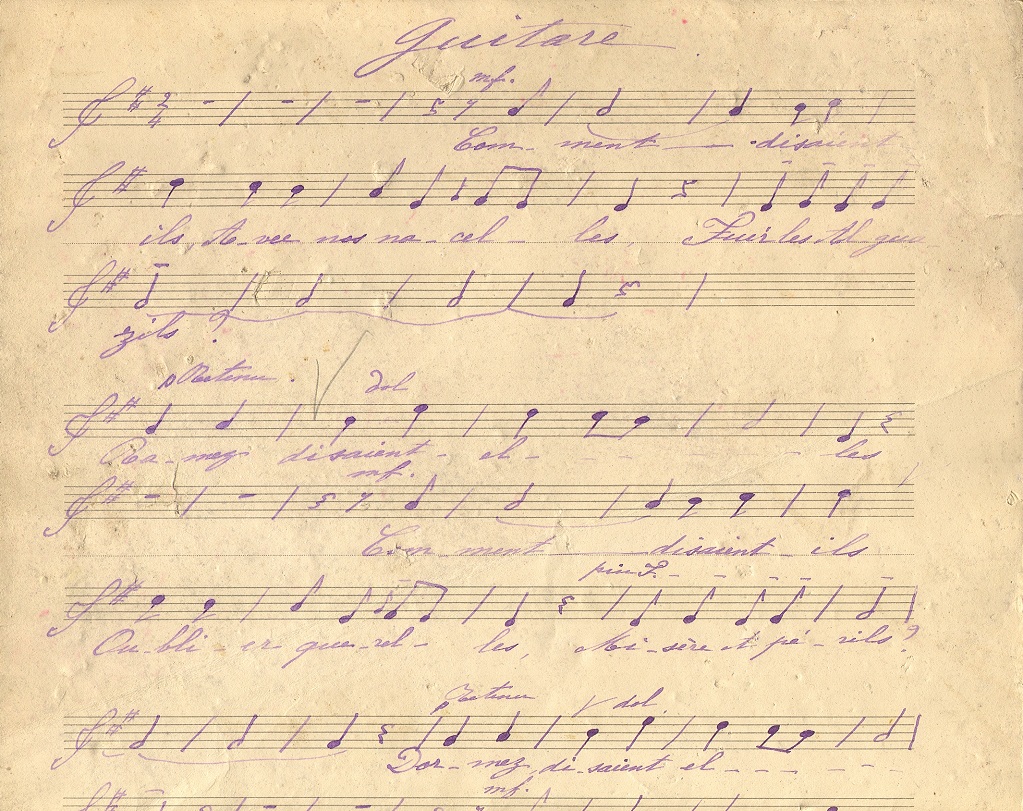 Guitare
mf.
Com- ment — disaient
ils A-vec nos na-cel- les, Fuir les Al gua
zils ?
p Retenu. dol
Ra-mez disaient- el- - - - - les
mf.
Com ment — disaient ils
piu F. - - - -
Ou-bli er que-rel- les, Mi-sère et pé-rils?
p Retenu dol.
Dor-mez di-saient el - - - - -
mf.